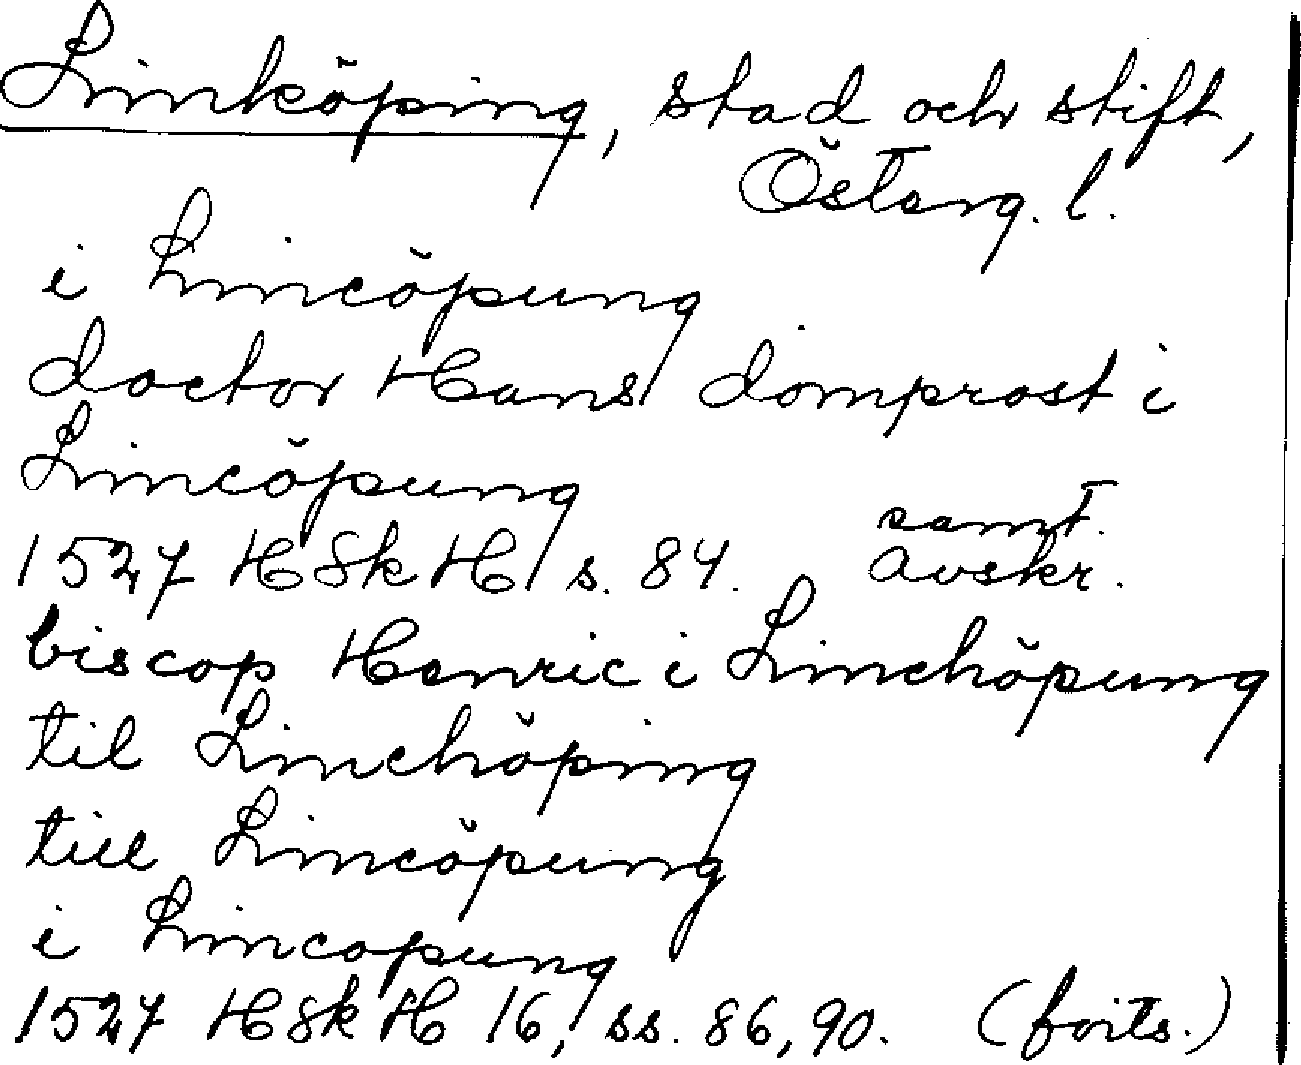 Linköping, stad och stift,
Österg. l.
i Lincöpung
doctor Hans domprost i
Lincöpung
samt.
1527 HSkH s. 84. avskr.
biscop Henric i Linchöpung
til Linchöping
till Lincöpung
i Lincopung
1527 HSkH 16, ss. 86, 90. (forts.)